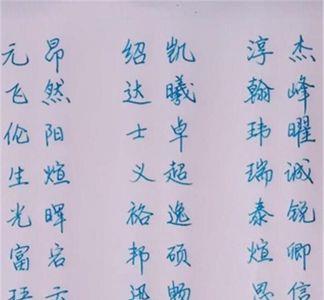 元昂 绍凯 淳杰
飞然 达曦 翰峰
伦阳 士卓 玮曜
生煊 义超 瑞诚
光晖 裕逸 泰锐
富容 邦硕 煊卿
迅畅 思信